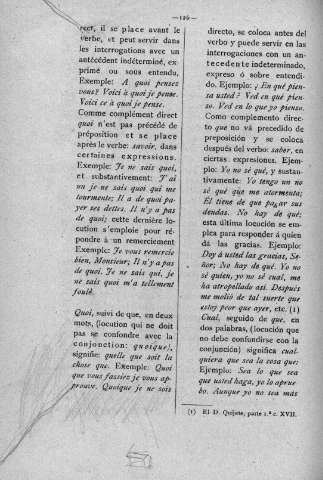 —126—
rect, il se place avant le
verbe, et peut servir dans
les interrogations avec un
antécédent indéterminé, ex-
primé ou sous entendu,
Exemple: A quoi pensez
vous? Voici à quoi je pense.
Voici ce à quoi je pense.
Comme complément direct
quoi n'est pas précédé de
préposition et se place
après le verbe: savoir, dans
certaines expressions.
Exemple: Je ne sais quoi,
et substantivement: J'ai
un je ne sais quoi qui me
tourmente; Il a de quoi pa-
yer ses dettes. Il n'y a pas
de quoi; cette dernière lo-
cution s'emploie pour ré-
pondre à un remerciement
Exemple: Je vous remercie
bien, Monsieur; Il n'y a pas
de quoi. Je ne sais qui, je
ne sais quoi m'a tellement
foulé.
Quoi, suivi de que, en deux
mots, (locution qui ne doit
pas se confondre avec la
conjonction: quoique),
signifie: quelle que soit la
chose que. Exemple: Quoi
que vous fassiez je vous ap-
prouve. Quoique je ne sois
directo, se coloca antes del
verbo y puede servir en las
interrogaciones con un an-
tecedente indeterminado,
expreso ó sobre entendi-
do. Ejemplo: ¿En qué pien-
sa usted? Ved en qué pien-
so. Ved en lo que yo pienso.
Como complemento direc-
to que no vá precedido de
preposición y se coloca
después del verbo: saber, en
ciertas expresiones. Ejem-
plo: Yo no sé qué, y sustan-
tivamente: Yo tengo un no
sé qué que me atormenta;
El tiene de que pagar sus
deudas. No hay de qué;
esta última locución se em-
plea para responder á quien
dá las gracias. Ejemplo:
Doy á usted las gracias, Se-
ñor; No hay de qué. Yo no
sé quien, yo no sé cual, me
ha atropellado así. Después
me molió de tal suerte que
estoy peor que ayer, etc. (1)
Cual, seguido de que, en
dos palabras, (locución que
no debe confundirse con la
conjunción) significa cual-
quiera que sea la cosa que:
Ejemplo: Sea lo que sea
que usted haga, yo lo aprue-
bo. Aunque yo no sea más
(1) El D. Quijote, parte 1.ª c. XVII.